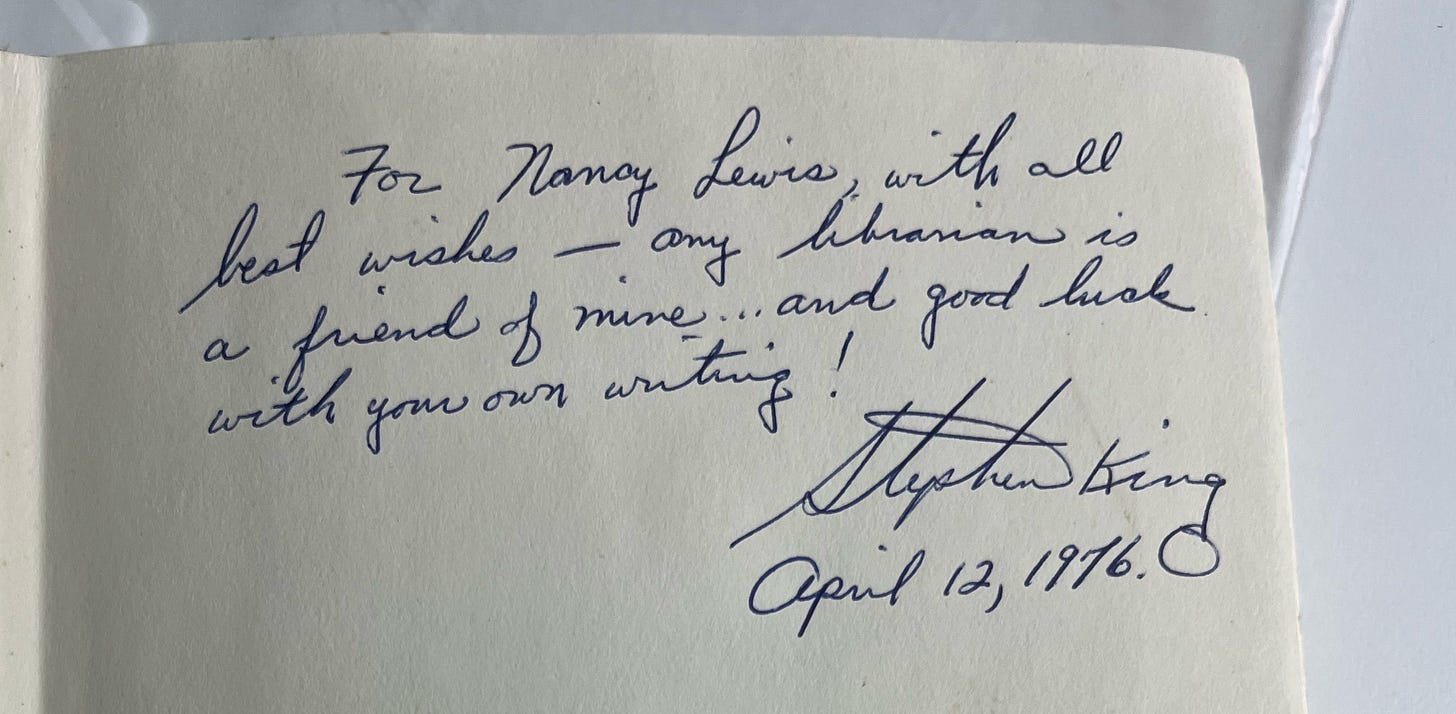 For Nancy Lewis, with all
best wishes — any librarian is
a friend of mine... and good luck
with your own writing!
Stephen King
April 12, 1976.